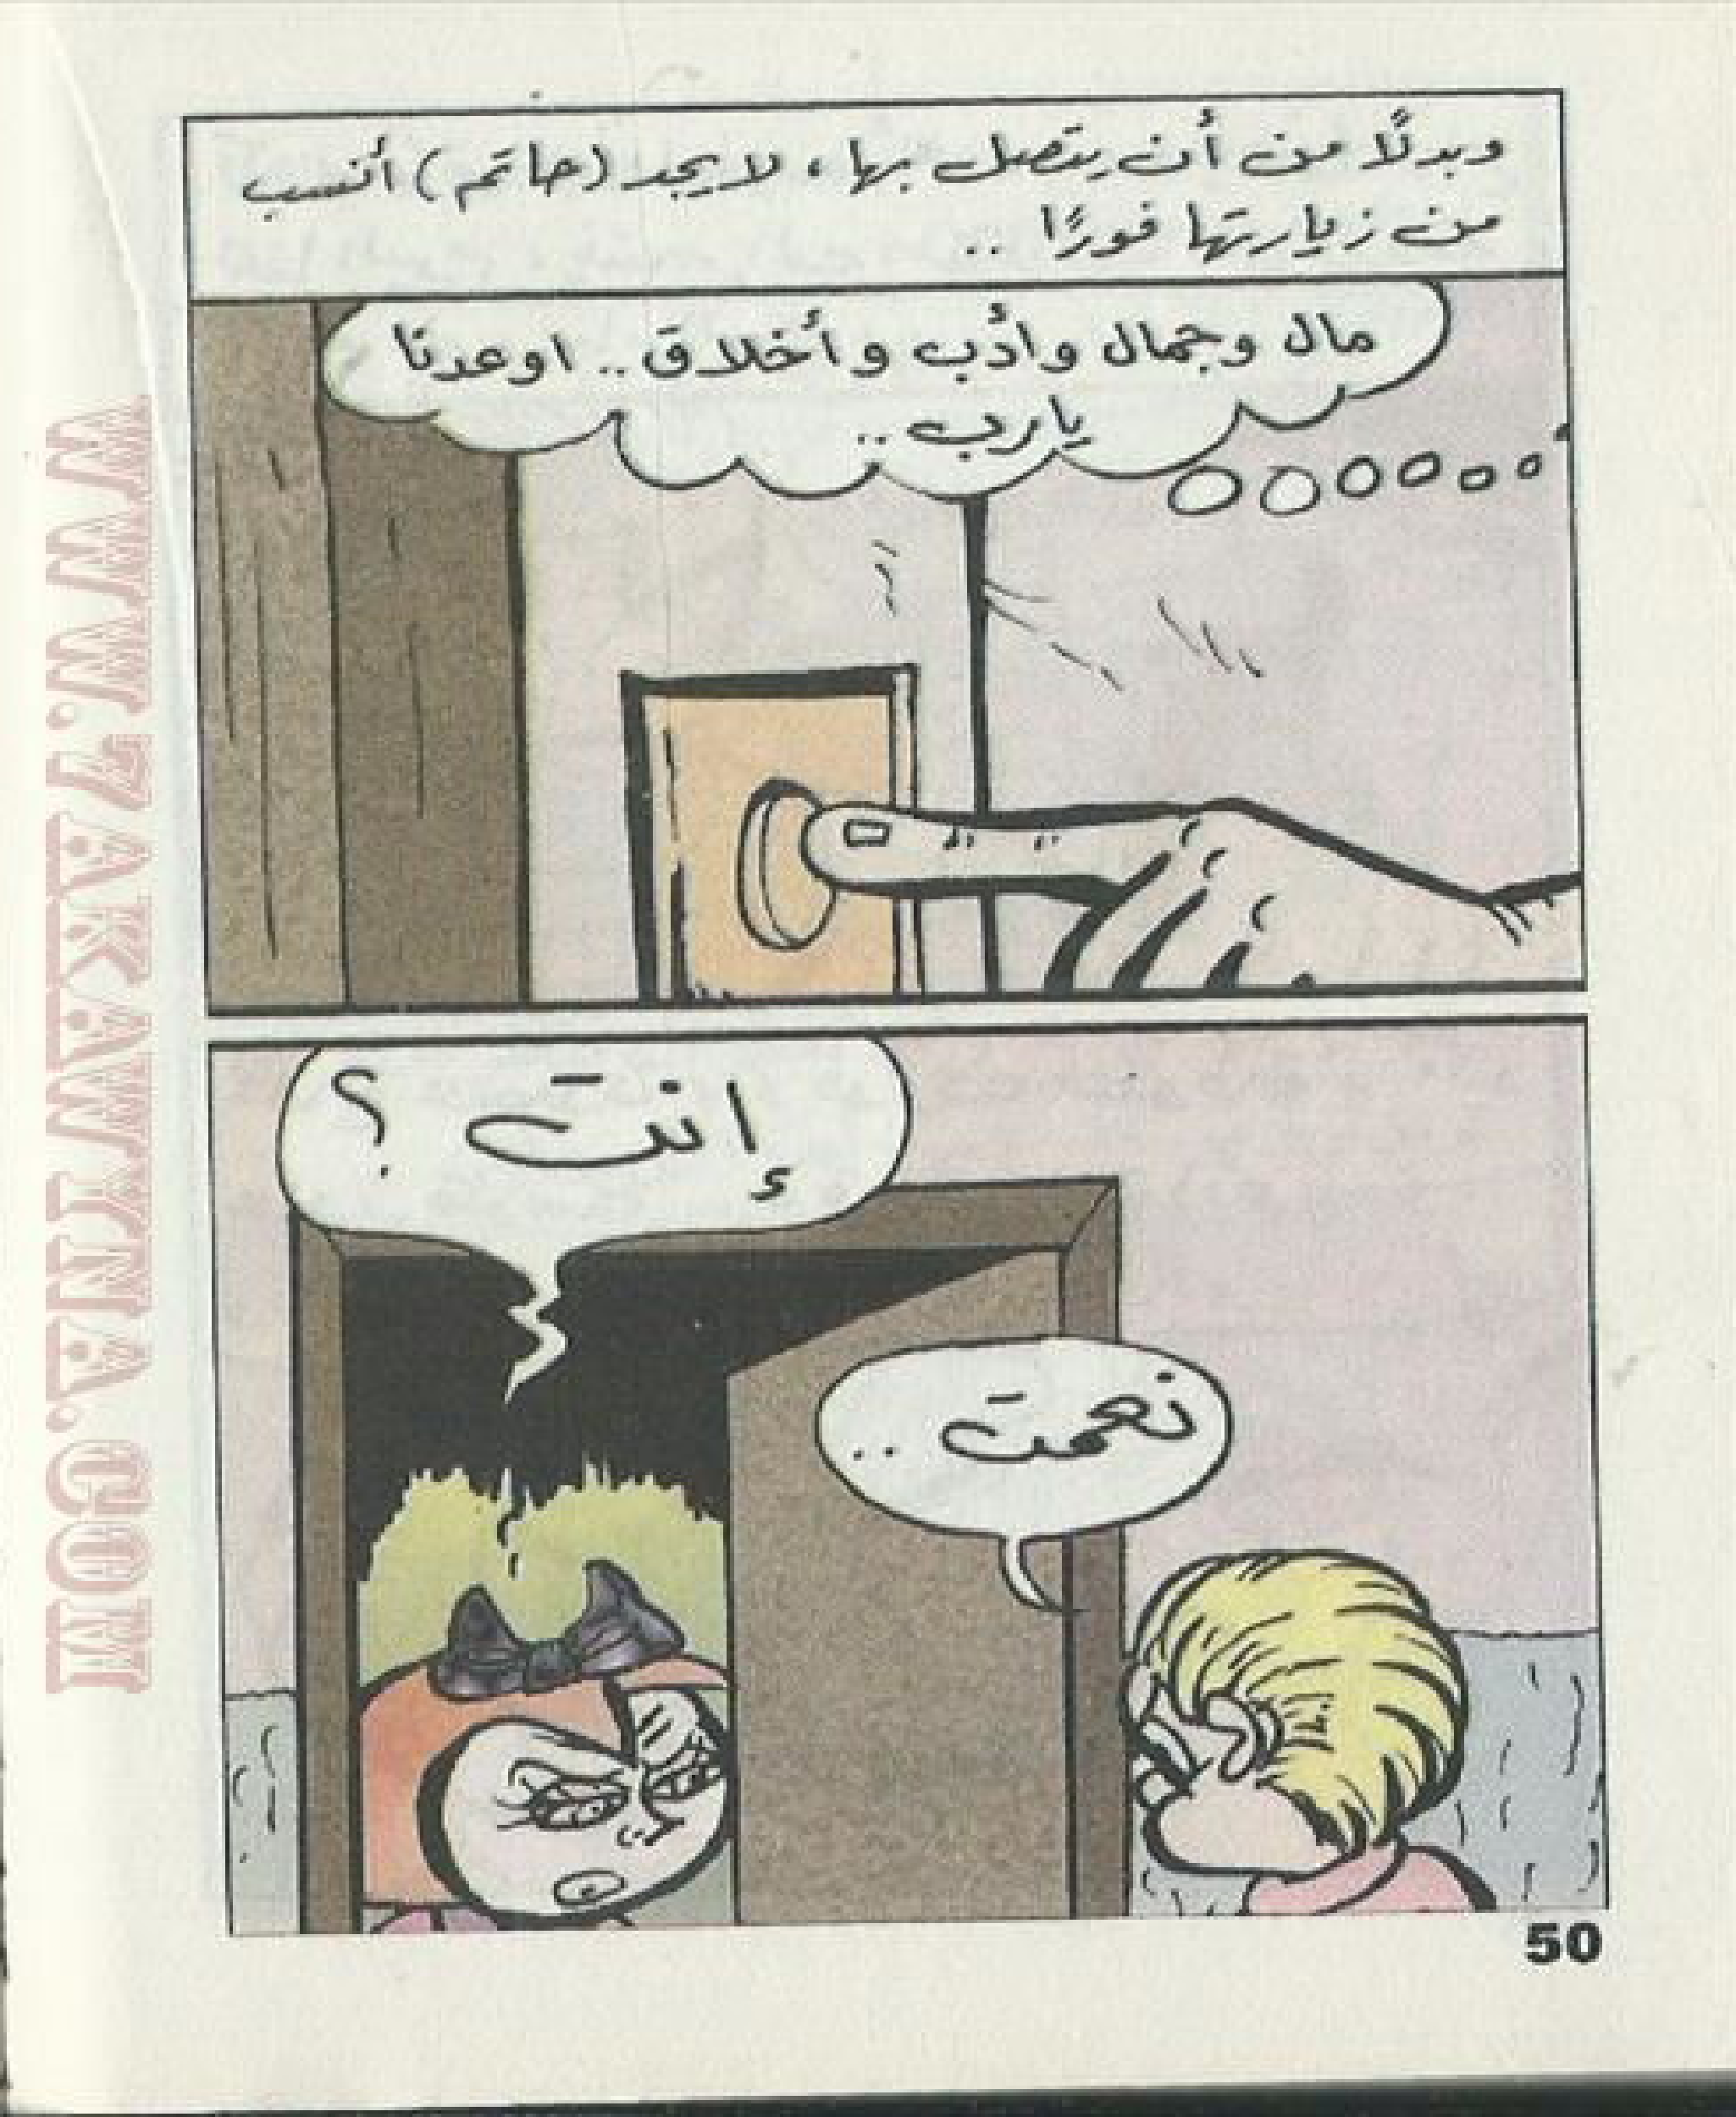 وبدلًا من أن يتصل بها، لا يجد (حاتم) أنسب
من زيارتها فورًا ..
مال وجمال وأدب وأخلاق .. اوعدنا
يارب ..
إنت ؟
نعمت ..
50
WWW.7AKAWITNA.COM